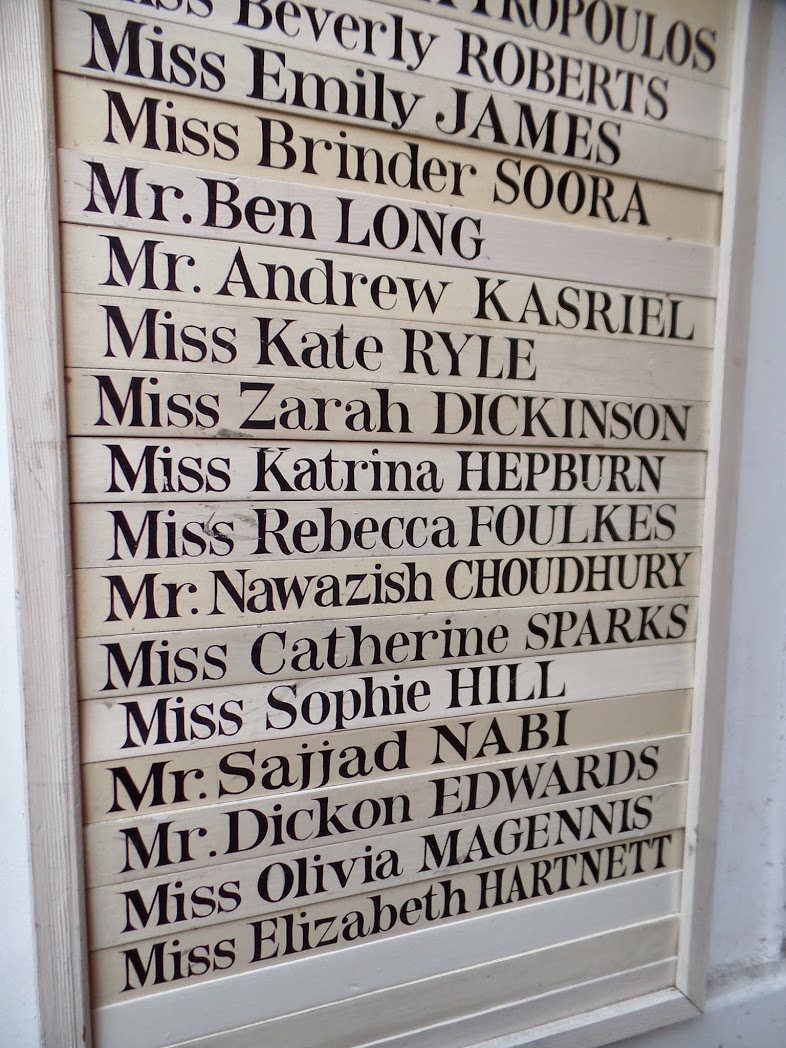 Miss Beverly ROBERTS
Miss Emily JAMES
Miss Brinder SOORA
Mr. Ben LONG
Mr. Andrew KASRIEL
Miss Kate RYLE
Miss Zarah DICKINSON
Miss Katrina HEPBURN
Miss Rebecca FOULKES
Mr. Nawazish CHOUDHURY
Miss Catherine SPARKS
Miss Sophie HILL
Mr. Sajjad NABI
Mr. Dickon EDWARDS
Miss Olivia MAGENNIS
Miss Elizabeth HARTNETT